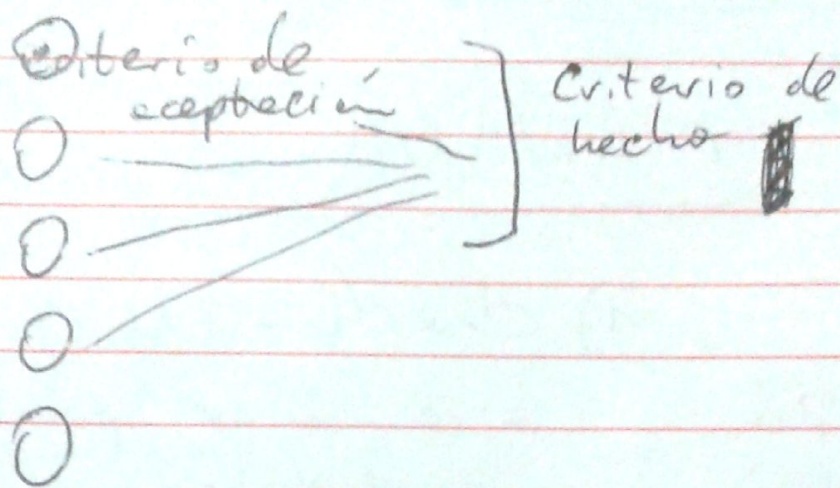 Criterio de
aceptación
Criterio de
hecho